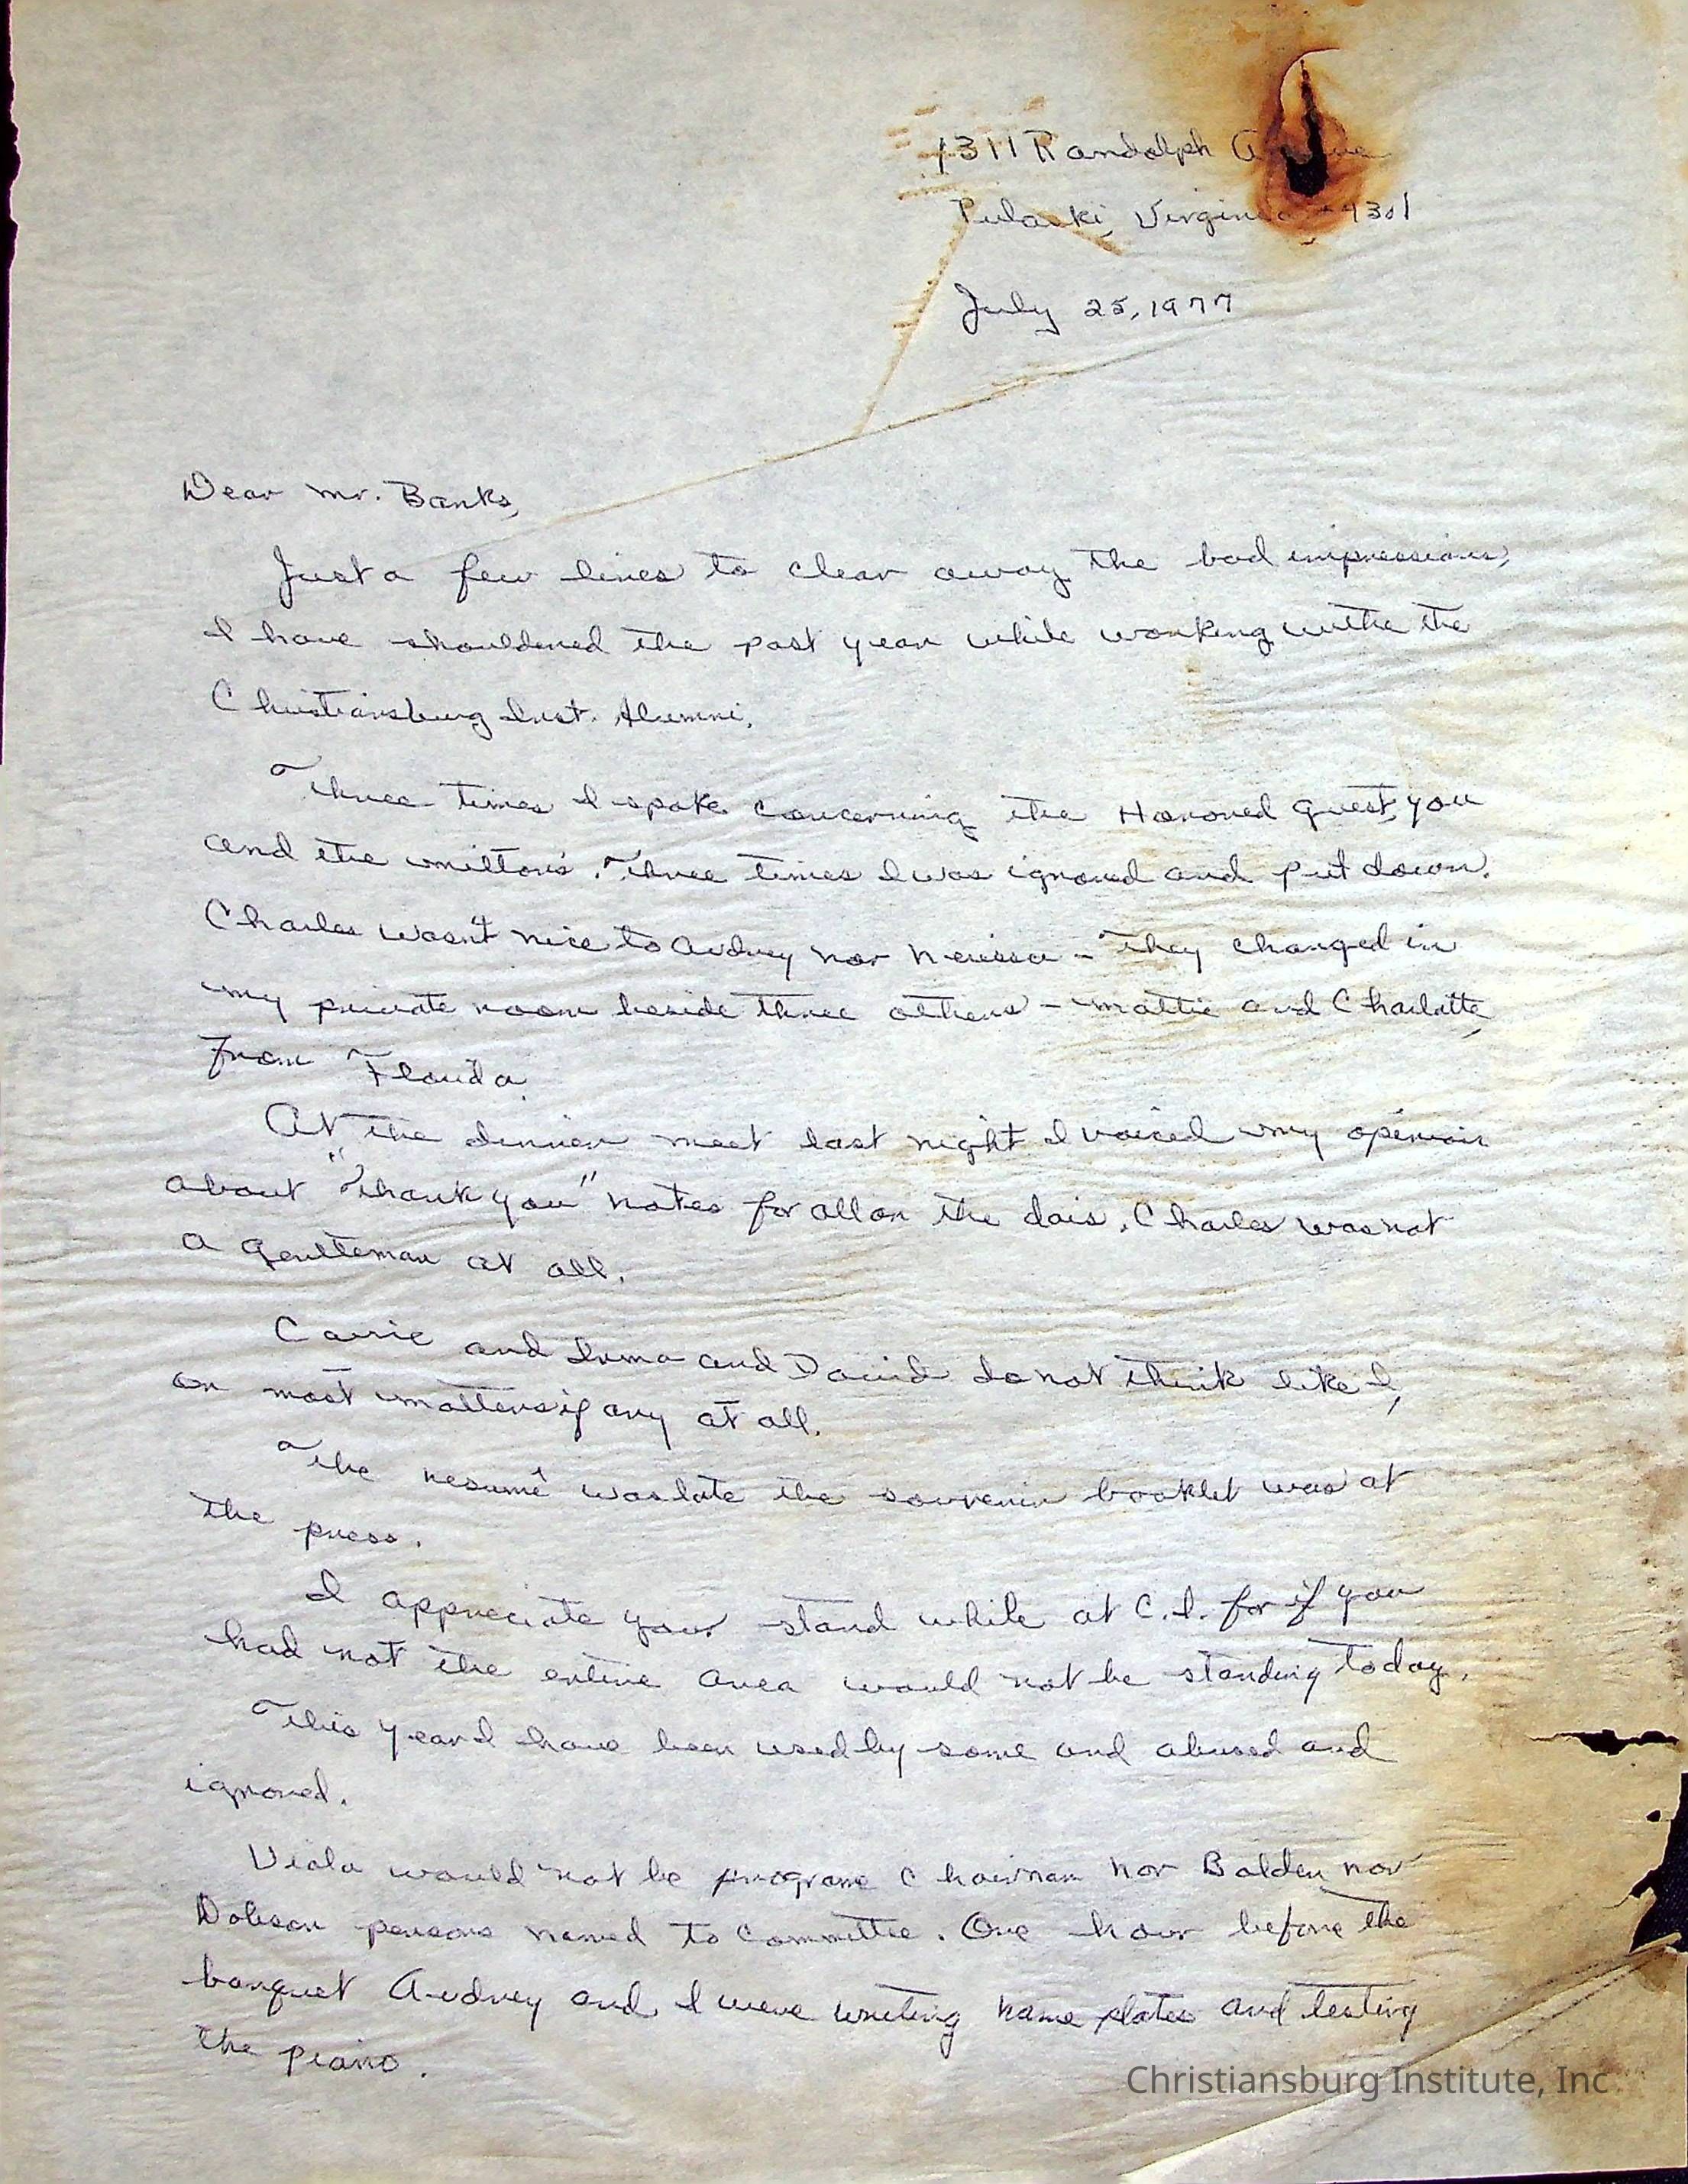 1311 Randolph
Pulaski, Virginia
July 25, 1977
Dear Mr. Banks,
Just a few lines to clear away the bad impressions,
I have shouldered the past year while working withe the
Christiansburg Inst. Alumni.
Three times I spoke concerning the Honored guest, you
and the Milton's. Three times I was ignored and put down.
Charles wasn't nice to Audrey nor Nerissa - They changed in
my private room beside three others - Mattie and Charlotte,
from Florida.
At the dinner meet last night I voiced my opinion
about "Thank you" notes for all on the dais. Charles was not
a gentleman at all.
Carrie and Irma and David do not think like I,
on most matters if any at all.
The resumé was late the souvenir booklet was at
the press.
I appreciate your stand while at C.I. for if you
had not the entire area would not be standing today.
This year I have been used by some and abused and
ignored.
Viola would not be programe chairman nor Bolden nor
Dobson persons named to committee. One hour before the
banquet Audrey and I were writing name plates and testing
the piano.
Christiansburg Institute, Inc